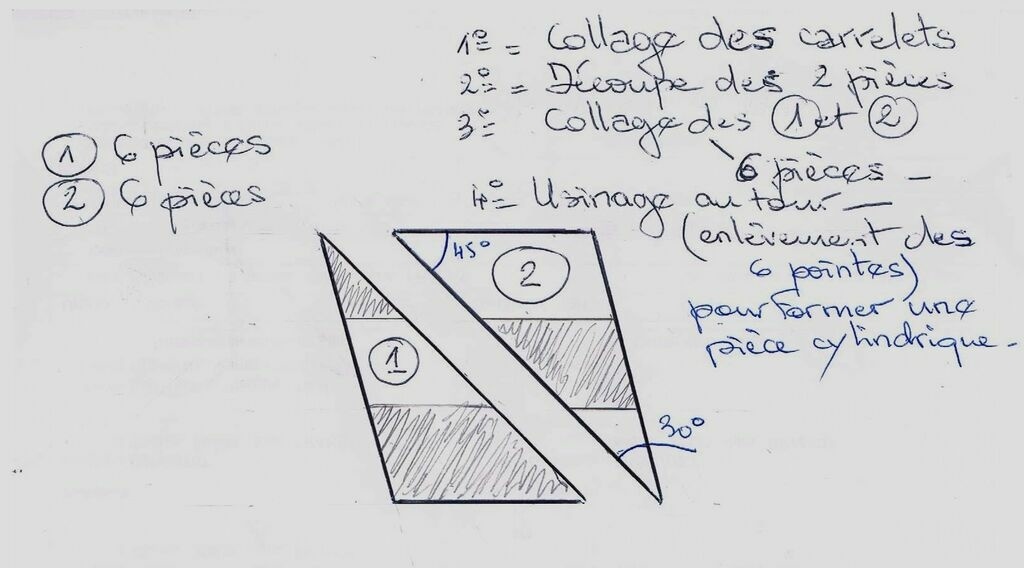 1º = Collage des carrelets
2º = Découpe des 2 pièces
3º Collage des 1 et 2
6 pièces -
4º- Usinage au tour -
(enlèvement des
6 pointes)
pour former une
pièce cylindrique -
1 6 pièces
2 6 pièces
45°
2
1
30°